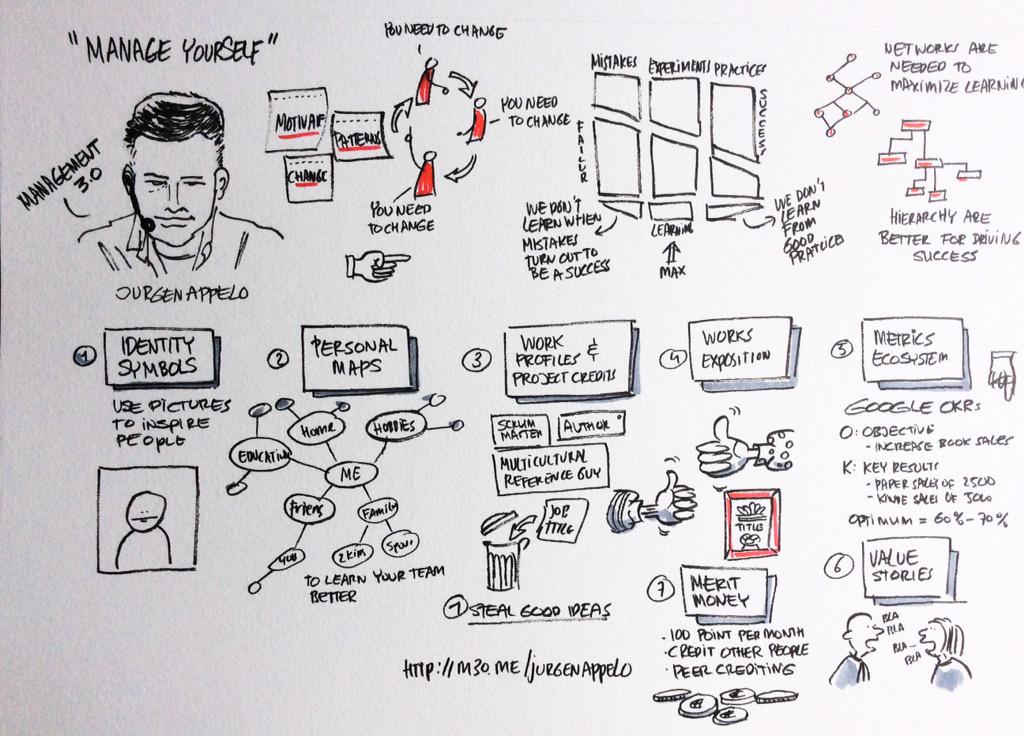 "MANAGE YOURSELF"
MANAGEMENT
3.0
JURGEN APPELO
MOTIVATE
PATTERNS
CHANGE
YOU NEED TO CHANGE
YOU NEED
TO CHANGE
YOU NEED
TO CHANGE
MISTAKES EXPERIMENTS PRACTICES
FAILUR
SUCCESS
WE DON'T
LEARN WHEN
MISTAKES
TURN OUT TO
BE A SUCCESS
LEARNING
MAX
WE DON'T
LEARN
FROM
GOOD
PRATICES
NETWORKS ARE
NEEDED TO
MAXIMIZE LEARNING
HIERARCHY ARE
BETTER FOR DRIVING
SUCCESS
1 IDENTITY
SYMBOLS
USE PICTURES
TO INSPIRE
PEOPLE
2 PERSONAL
MAPS
HOME
HOBBIES
EDUCATION
ME
Friens
Family
2 kids
TO LEARN YOUR TEAM
BETTER
3 WORK
PROFILES &
PROJECT CREDITS
SCRUM
MASTER
AUTHOR
MULTICULTURAL
REFERENCE GUY
JOB
TITLE
4 WORKS
EXPOSITION
TITLE
5 METRICS
ECOSYSTEM
GOOGLE OKRs
O: OBJECTIVE
- INCREASE BOOK SALES
K: KEY RESULTS
- PAPER SALES OF 2500
OPTIMUM = 60% - 70%
6 VALUE
STORIES
BLA
BLA
BLA -
BLA
7 MERIT
MONEY
- 100 POINT PER MONTH
- CREDIT OTHER PEOPLE
- PEER CREDITING
7 STEAL GOOD IDEAS
HTTP://M30.ME/JURGENAPPELO